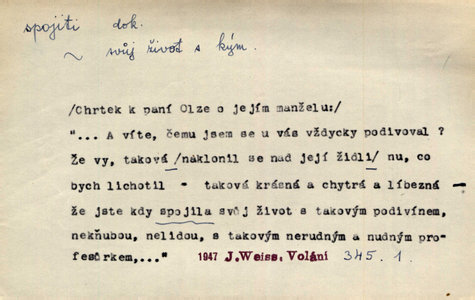 spojiti dok.
~ svůj život s kým.
/Chrtek k paní Olze o jejím manželu:/
"... A víte, čemu jsem se u vás vždycky podivoval ?
Že vy, taková /naklonil se nad její židli/ nu, co
bych lichotil - taková krásná a chytrá a líbezná —
že jste kdy spojila svůj život s takovým podivínem,
nekňubou, nelidou, s takovým nerudným a nudným pro-
fesůrkem,..." 1947 J. Weiss, Volání 345. 1.